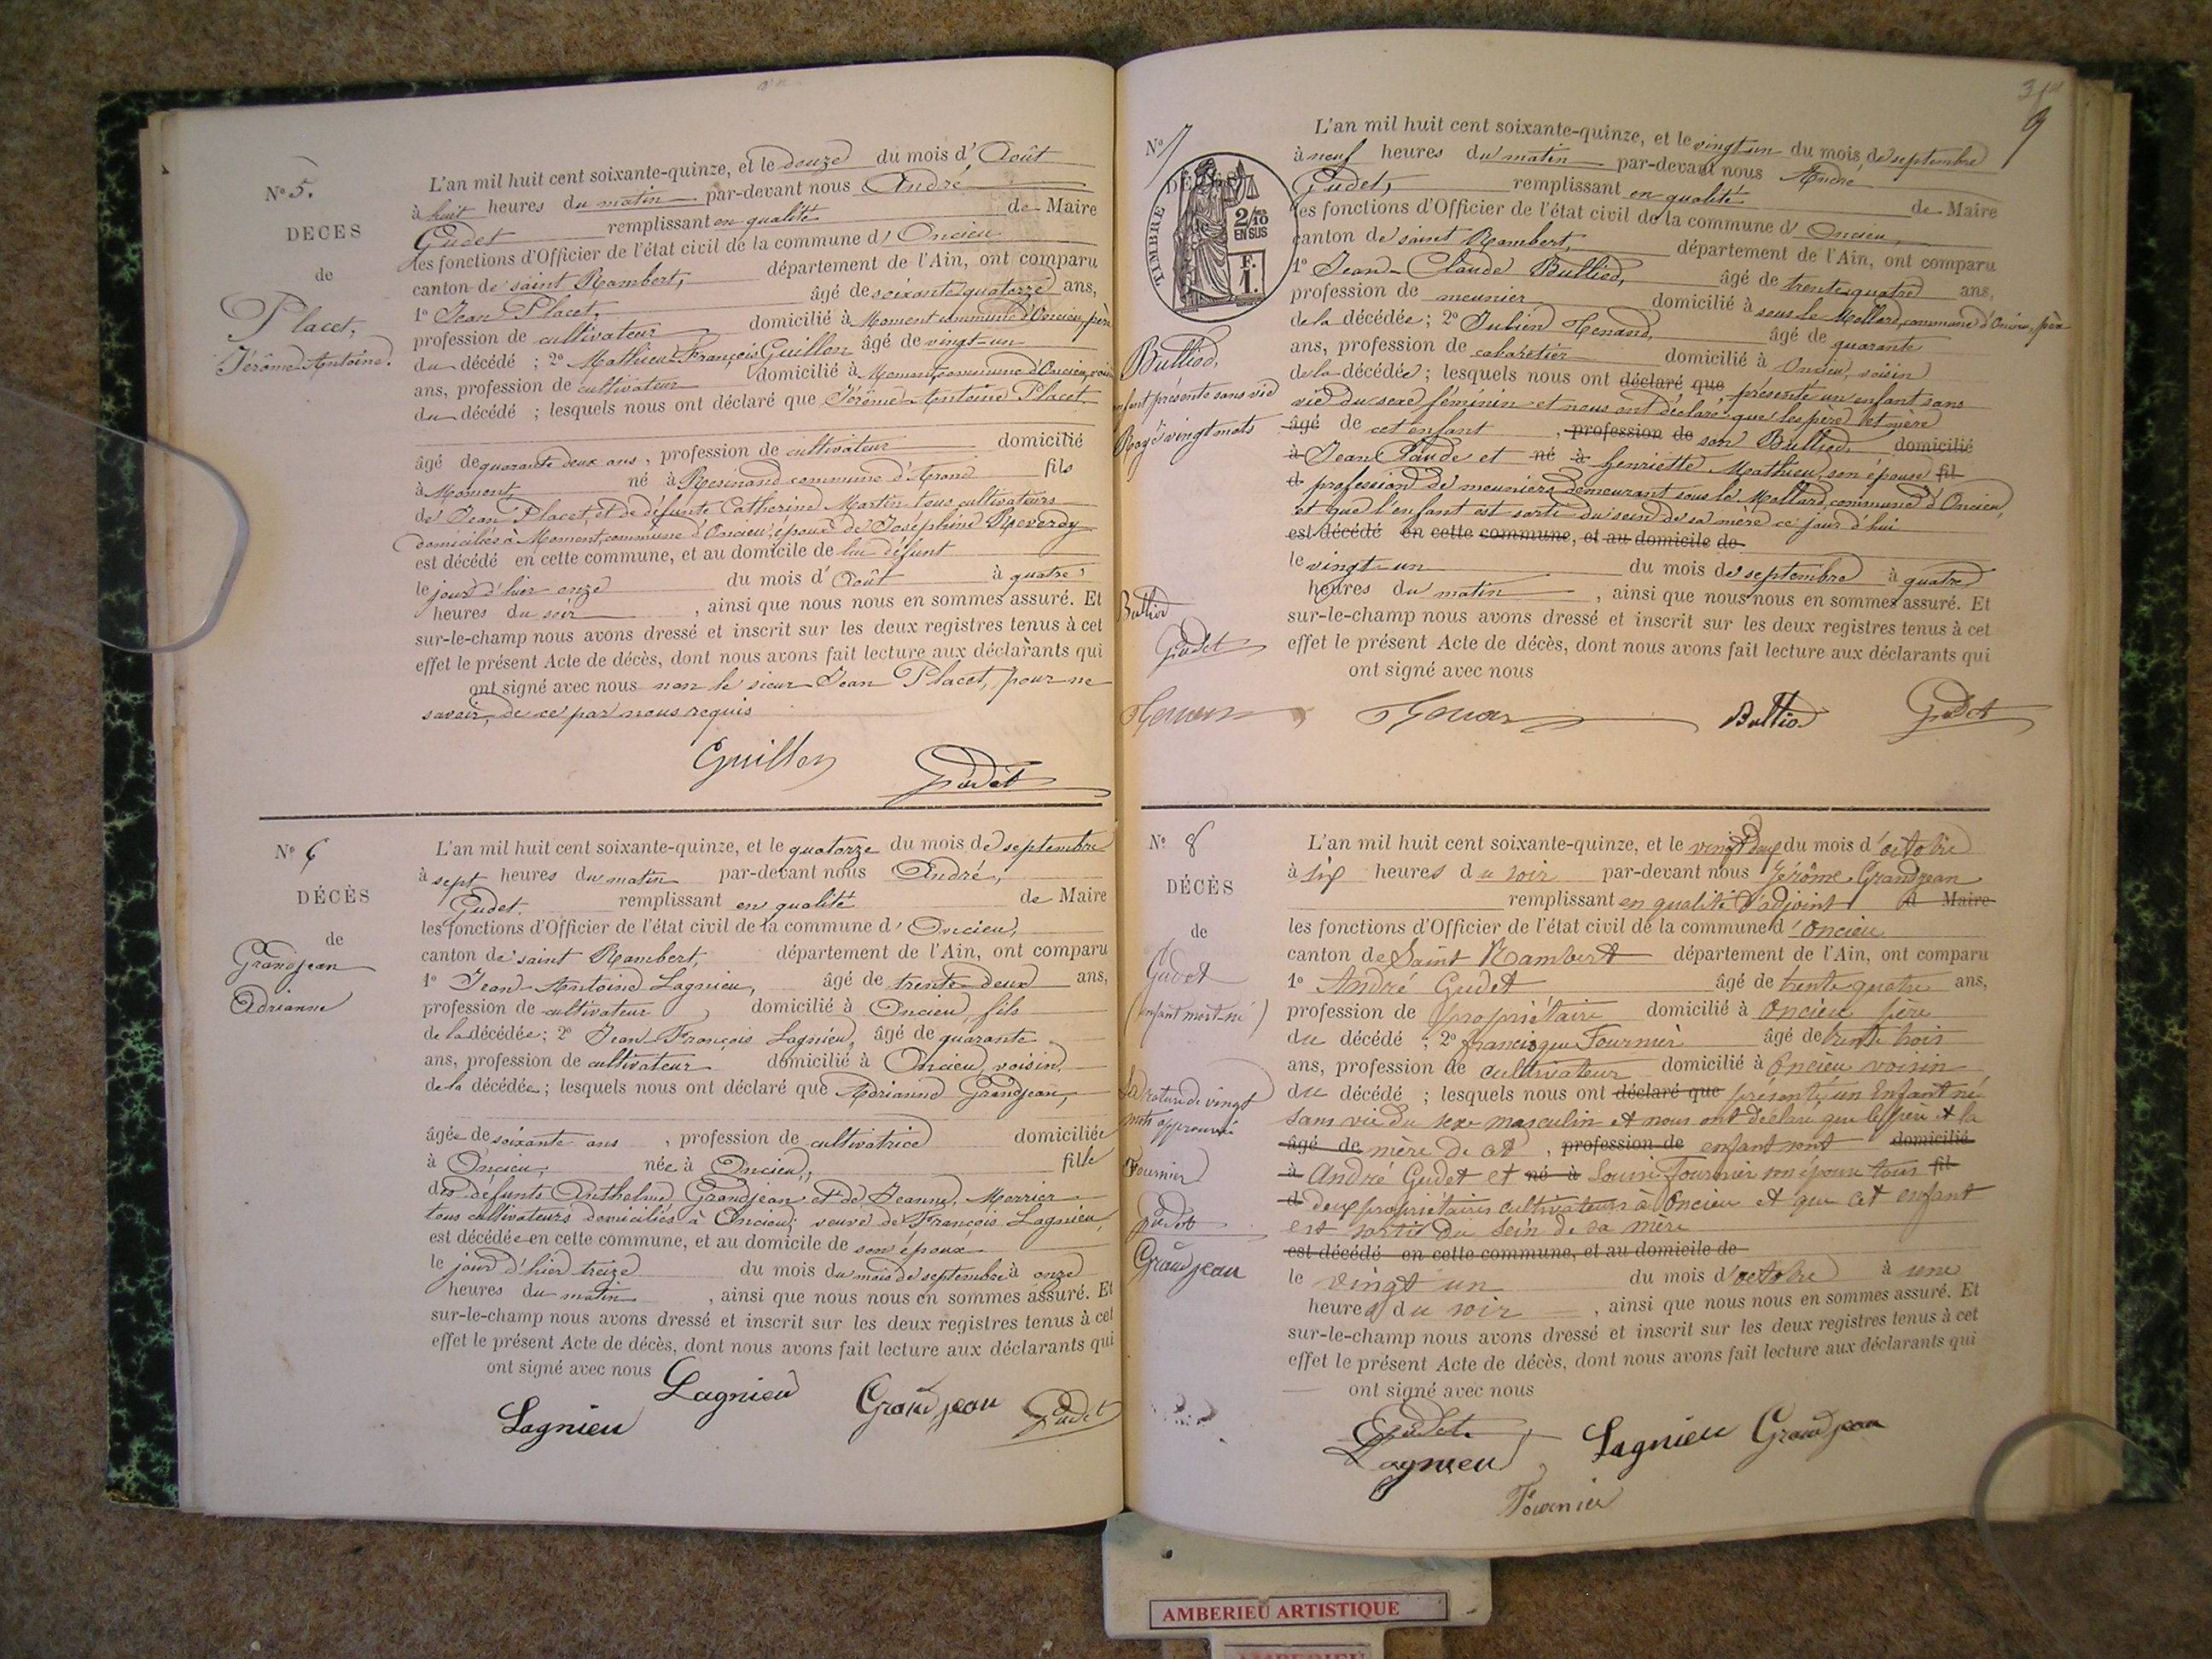 N° 5.
DECES
de
Placet,
Jérôme Antoine.
L'an mil huit cent soixante-quinze, et le douze du mois d'Août
à huit heures du matin par-devant nous André
Gudet remplissant en qualité de Maire
les fonctions d'Officier de l'état civil de la commune d'Oncieu
canton de saint Rambert, département de l'Ain, ont comparu
1° Jean Placet, âgé de soixante quatorze ans,
profession de cultivateur domicilié à Moment commune d'Oncieu, père
du décédé ; 2° Mathieu François Guillon âgé de vingt-un
ans, profession de cultivateur domicilié à Moment, commune d'Oncieu, voisin
du décédé ; lesquels nous ont déclaré que Jérôme Antoine Placet
âgé de quarante deux ans, profession de cultivateur domicilié
à Moment, né à Résinand commune d'Arand fils
de Jean Placet, et de défunte Catherine Martin tous cultivateurs
domiciliés à Moment, commune d'Oncieu, époux de Joséphine Reverdy
est décédé en cette commune, et au domicile de lui défunt
le jour d'hier onze du mois d'Août à quatre
heures du soir, ainsi que nous nous en sommes assuré. Et
sur-le-champ nous avons dressé et inscrit sur les deux registres tenus à cet
effet le présent Acte de décès, dont nous avons fait lecture aux déclarants qui
ont signé avec nous non le sieur Jean Placet, pour ne
savoir, de ce par nous requis
Guillon Gudet
N° 6
DÉCÈS
de
Grandjean
Adrianne
L'an mil huit cent soixante-quinze, et le quatorze du mois de septembre
à sept heures du matin par-devant nous André,
Gudet. remplissant en qualité de Maire
les fonctions d'Officier de l'état civil de la commune d'Oncieu,
canton de saint Rambert, département de l'Ain, ont comparu
1° Jean-Antoine Lagnieu, âgé de trente-deux ans,
profession de cultivateur, domicilié à Oncieu, fils
de la décédée ; 2° Jean-François Lagnieu, âgé de quarante
ans, profession de cultivateur domicilié à Oncieu, voisin,
de la décédée ; lesquels nous ont déclaré que Adrianne Grandjean,
âgée de soixante ans, profession de cultivatrice domiciliée
à Oncieu, née à Oncieu, fille
des défunts Anthelme Grandjean et de Jeanne Merrier
tous cultivateurs domiciliés à Oncieu; veuve de François Lagnieu,
est décédée en cette commune, et au domicile de son époux
le jour d'hier treize du mois du mois de septembre à onze
heures du matin, ainsi que nous nous en sommes assuré. Et
sur-le-champ nous avons dressé et inscrit sur les deux registres tenus à cet
effet le présent Acte de décès, dont nous avons fait lecture aux déclarants qui
ont signé avec nous
Lagnieu Lagnieu Grandjean Gudet
9
N° 7
DÉCÈS
TIMBRE
2/10
EN SUS
F.
1.
Bulliod,
enfant présenté sans vie
Rayé vingt mots
Bulliod
Gudet
L'an mil huit cent soixante-quinze, et le vingt un du mois de septembre
à neuf heures du matin par-devant nous André
Gudet, remplissant en qualité de Maire
les fonctions d'Officier de l'état civil de la commune d'Oncieu,
canton de saint Rambert, département de l'Ain, ont comparu
1° Jean-Claude Bulliod, âgé de trente quatre ans,
profession de meunier domicilié à sous le Mollard, commune d'Oncieu, père
de la décédée ; 2° Julien Tenand, âgé de quarante
ans, profession de cabaretier domicilié à Oncieu, voisin
de la décédée ; lesquels nous ont déclaré que présenté un enfant sans
vie du sexe féminin et nous ont déclaré que les père et mère
âgé de cet enfant, profession de son Bulliod, domicilié
à Jean Claude et né à henriette Mathieu, son épouse fil
d profession de meuniers demeurant sous le Mollard, commune d'Oncieu,
et que l'enfant est sorti du sein de sa mère ce jour d'hui
est décédé en cette commune, et au domicile de
le vingt-un du mois de septembre à quatre
heures du matin, ainsi que nous nous en sommes assuré. Et
sur-le-champ nous avons dressé et inscrit sur les deux registres tenus à cet
effet le présent Acte de décès, dont nous avons fait lecture aux déclarants qui
ont signé avec nous
Bulliod Gudet
N° 8
DÉCÈS
de
Gudet
(enfant mort-né)
La rature de vingt
mots approuvée
Fournier
Gudet
Grandjean
L'an mil huit cent soixante-quinze, et le vingt deux du mois d'octobre
à six heures du soir par-devant nous Jérôme Grandjean
remplissant en qualité d'adjoint d Maire
les fonctions d'Officier de l'état civil de la commune d'Oncieu
canton de Saint Rambert département de l'Ain, ont comparu
1° André Gudet âgé de trente quatre ans,
profession de propriétaire domicilié à Oncieu père
du décédé ; 2° francisque Fournier âgé de trente trois
ans, profession de cultivateur domicilié à Oncieu voisin
du décédé ; lesquels nous ont déclaré que présenté un Enfant né
sans vie du sexe masculin et nous ont déclaré que le père et la
âgé de mère de cet, profession de enfant sont domicilié
à André Gudet et né à Louise Fournier son épouse tous fil
d deux propriétaires cultivateurs à Oncieu et que cet enfant
est sortis du sein de sa mère
est décédé en cette commune, et au domicile de
le vingt un du mois d'octobre à une
heures du soir, ainsi que nous nous en sommes assuré. Et
sur-le-champ nous avons dressé et inscrit sur les deux registres tenus à cet
effet le présent Acte de décès, dont nous avons fait lecture aux déclarants qui
ont signé avec nous
Gudet
Lagnieu Lagnieu Grandjean
Fournier
AMBERIEU ARTISTIQUE
AMBERIEU